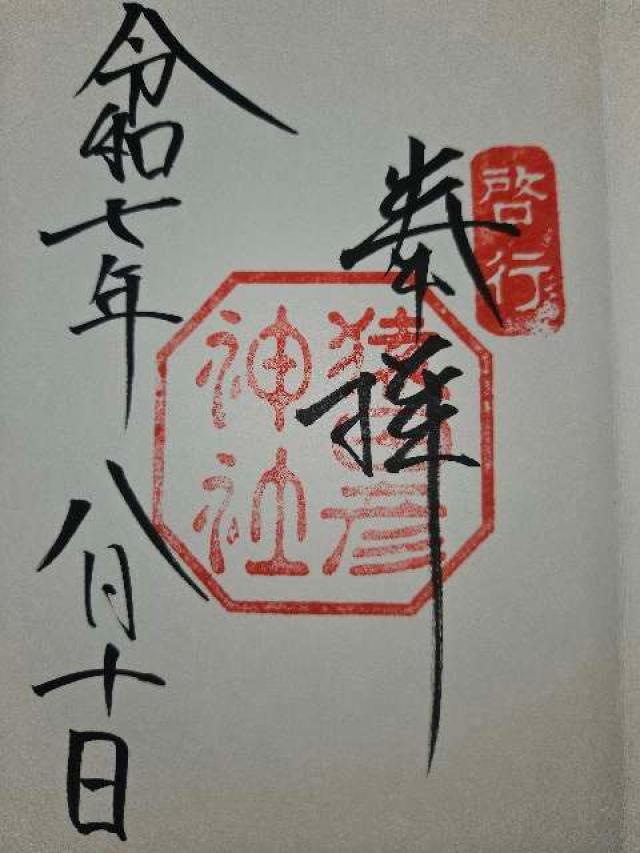 啓行
奉拝
猿田彦
神社
令和七年 八月十日